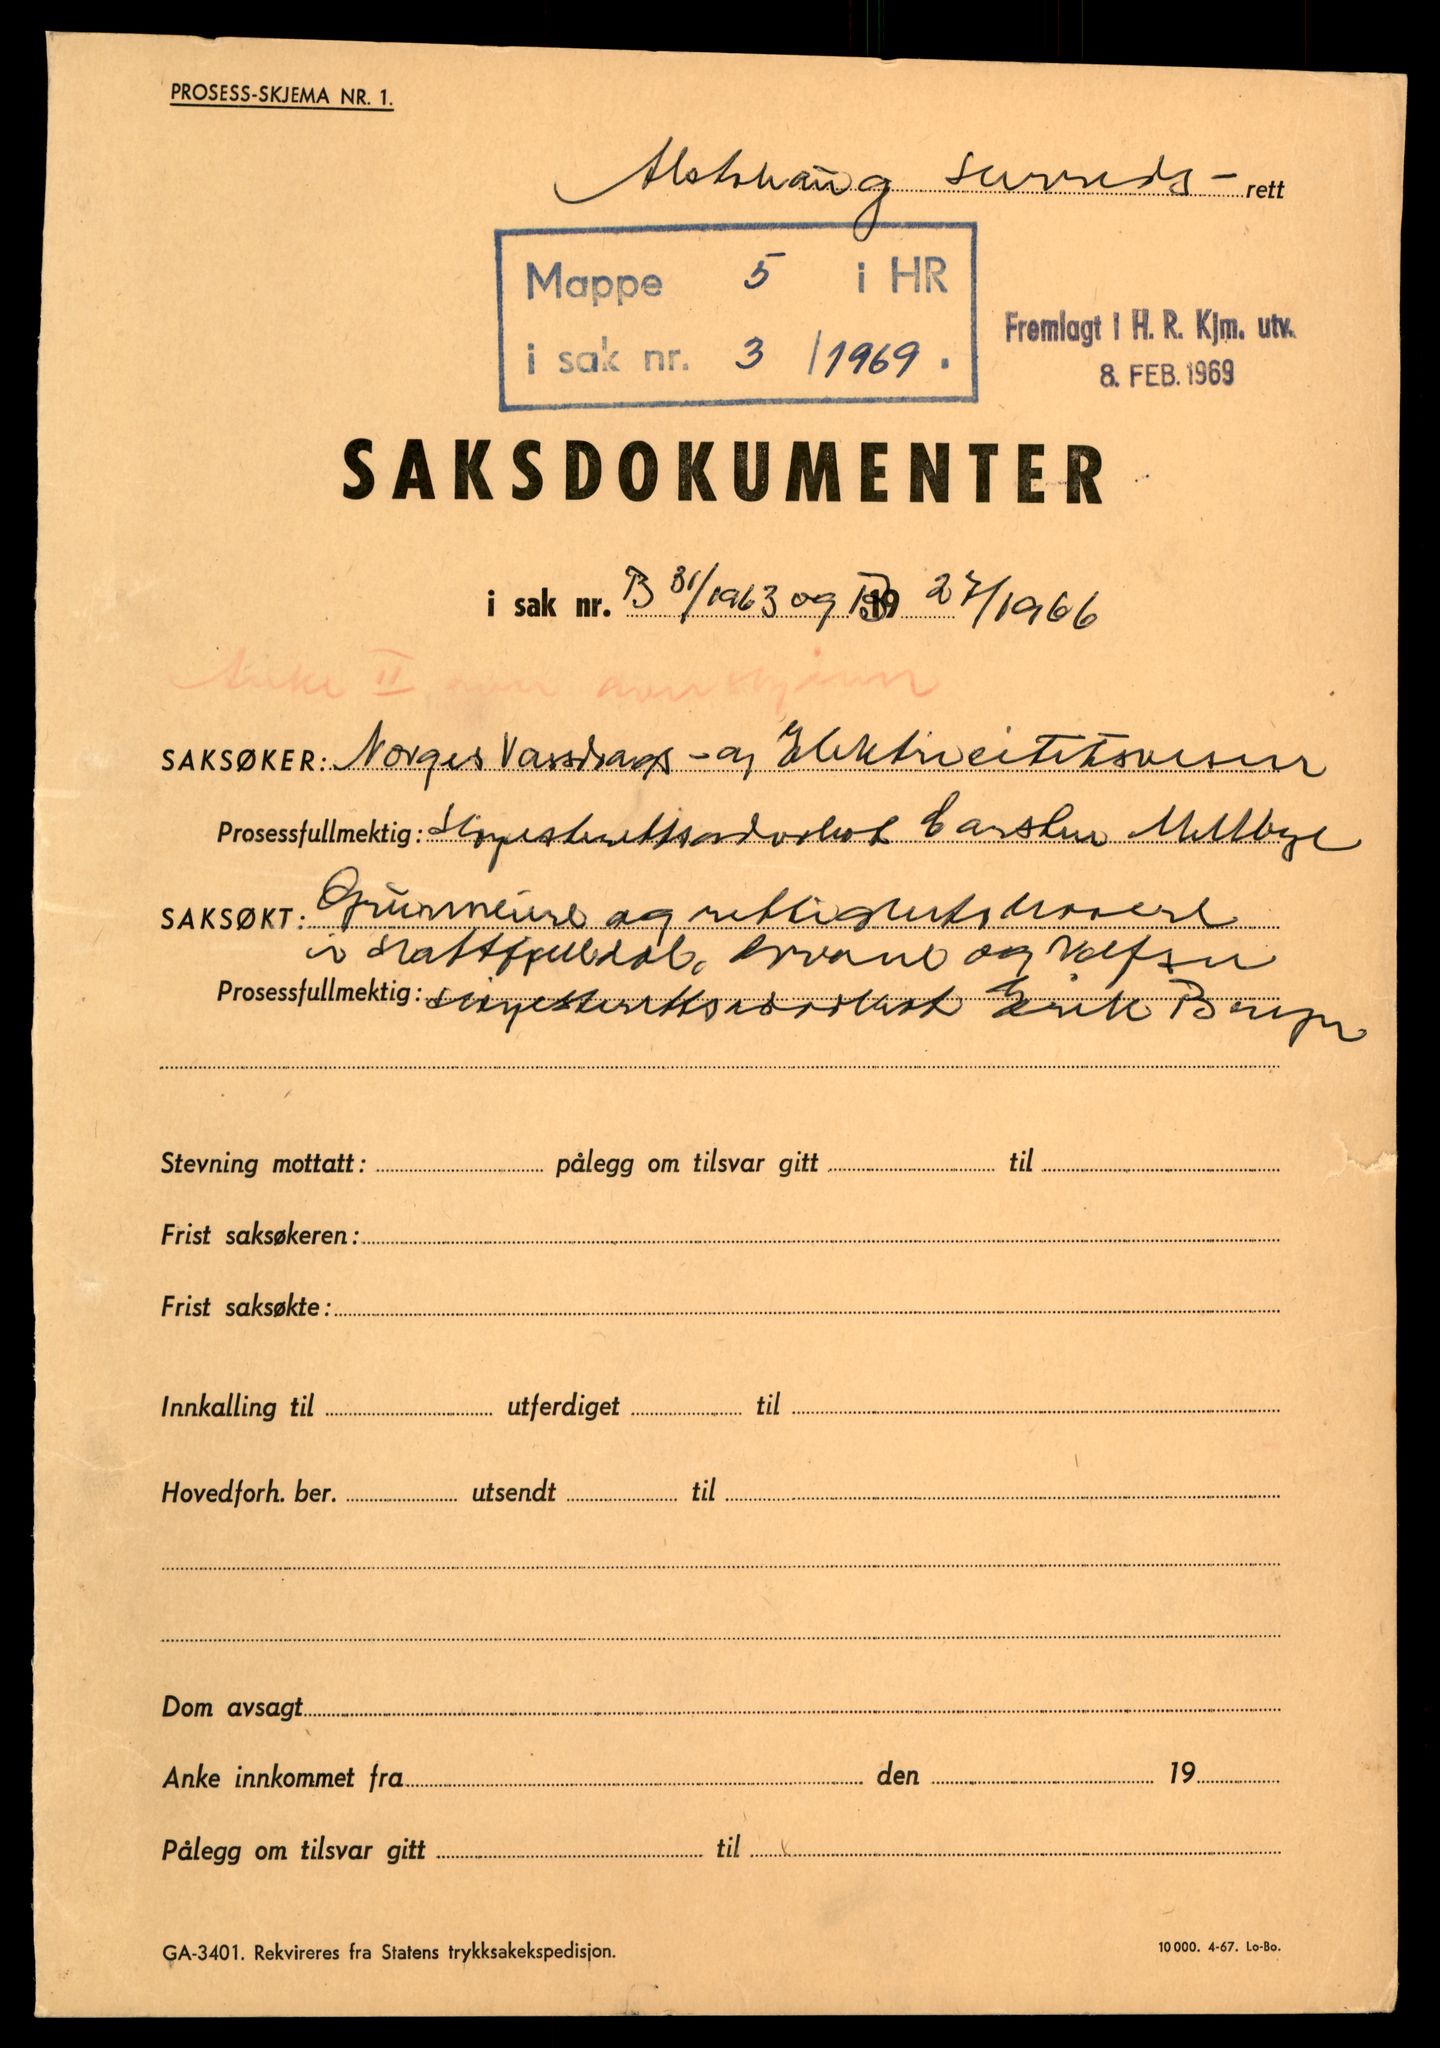 PROSESS-SKJEMA NR. 1.
Alstahaug sorenskriver-rett
Mappe 5 i HR
i sak nr. 3 / 1969.
Fremlagt i H. R. Kjm. utv.
8. FEB. 1969
SAKSDOKUMENTER
i sak nr. B 31/1963 og B 19 27/1966
Anke II over overskjønn
SAKSØKER: Norges Vassdrags- og Elektricitetsvesen
Prosessfullmektig: Høyesterettsadvokat Carsten Mellbye
SAKSØKT: Grunneiere og rettighetshavere
i Hattfjelldal, Grane og Vefsn
Prosessfullmektig: Høyesterettsadvokat Erik
Stevning mottatt: pålegg om tilsvar gitt til
Frist saksøkeren:
Frist saksøkte:
Innkalling til utferdiget til
Hovedforh. ber. utsendt til
Dom avsagt
Anke innkommet fra den 19
Pålegg om tilsvar gitt til
GA-3401. Rekvireres fra Statens trykksakekspedisjon.
10 000. 4-67. Lo-Bo.